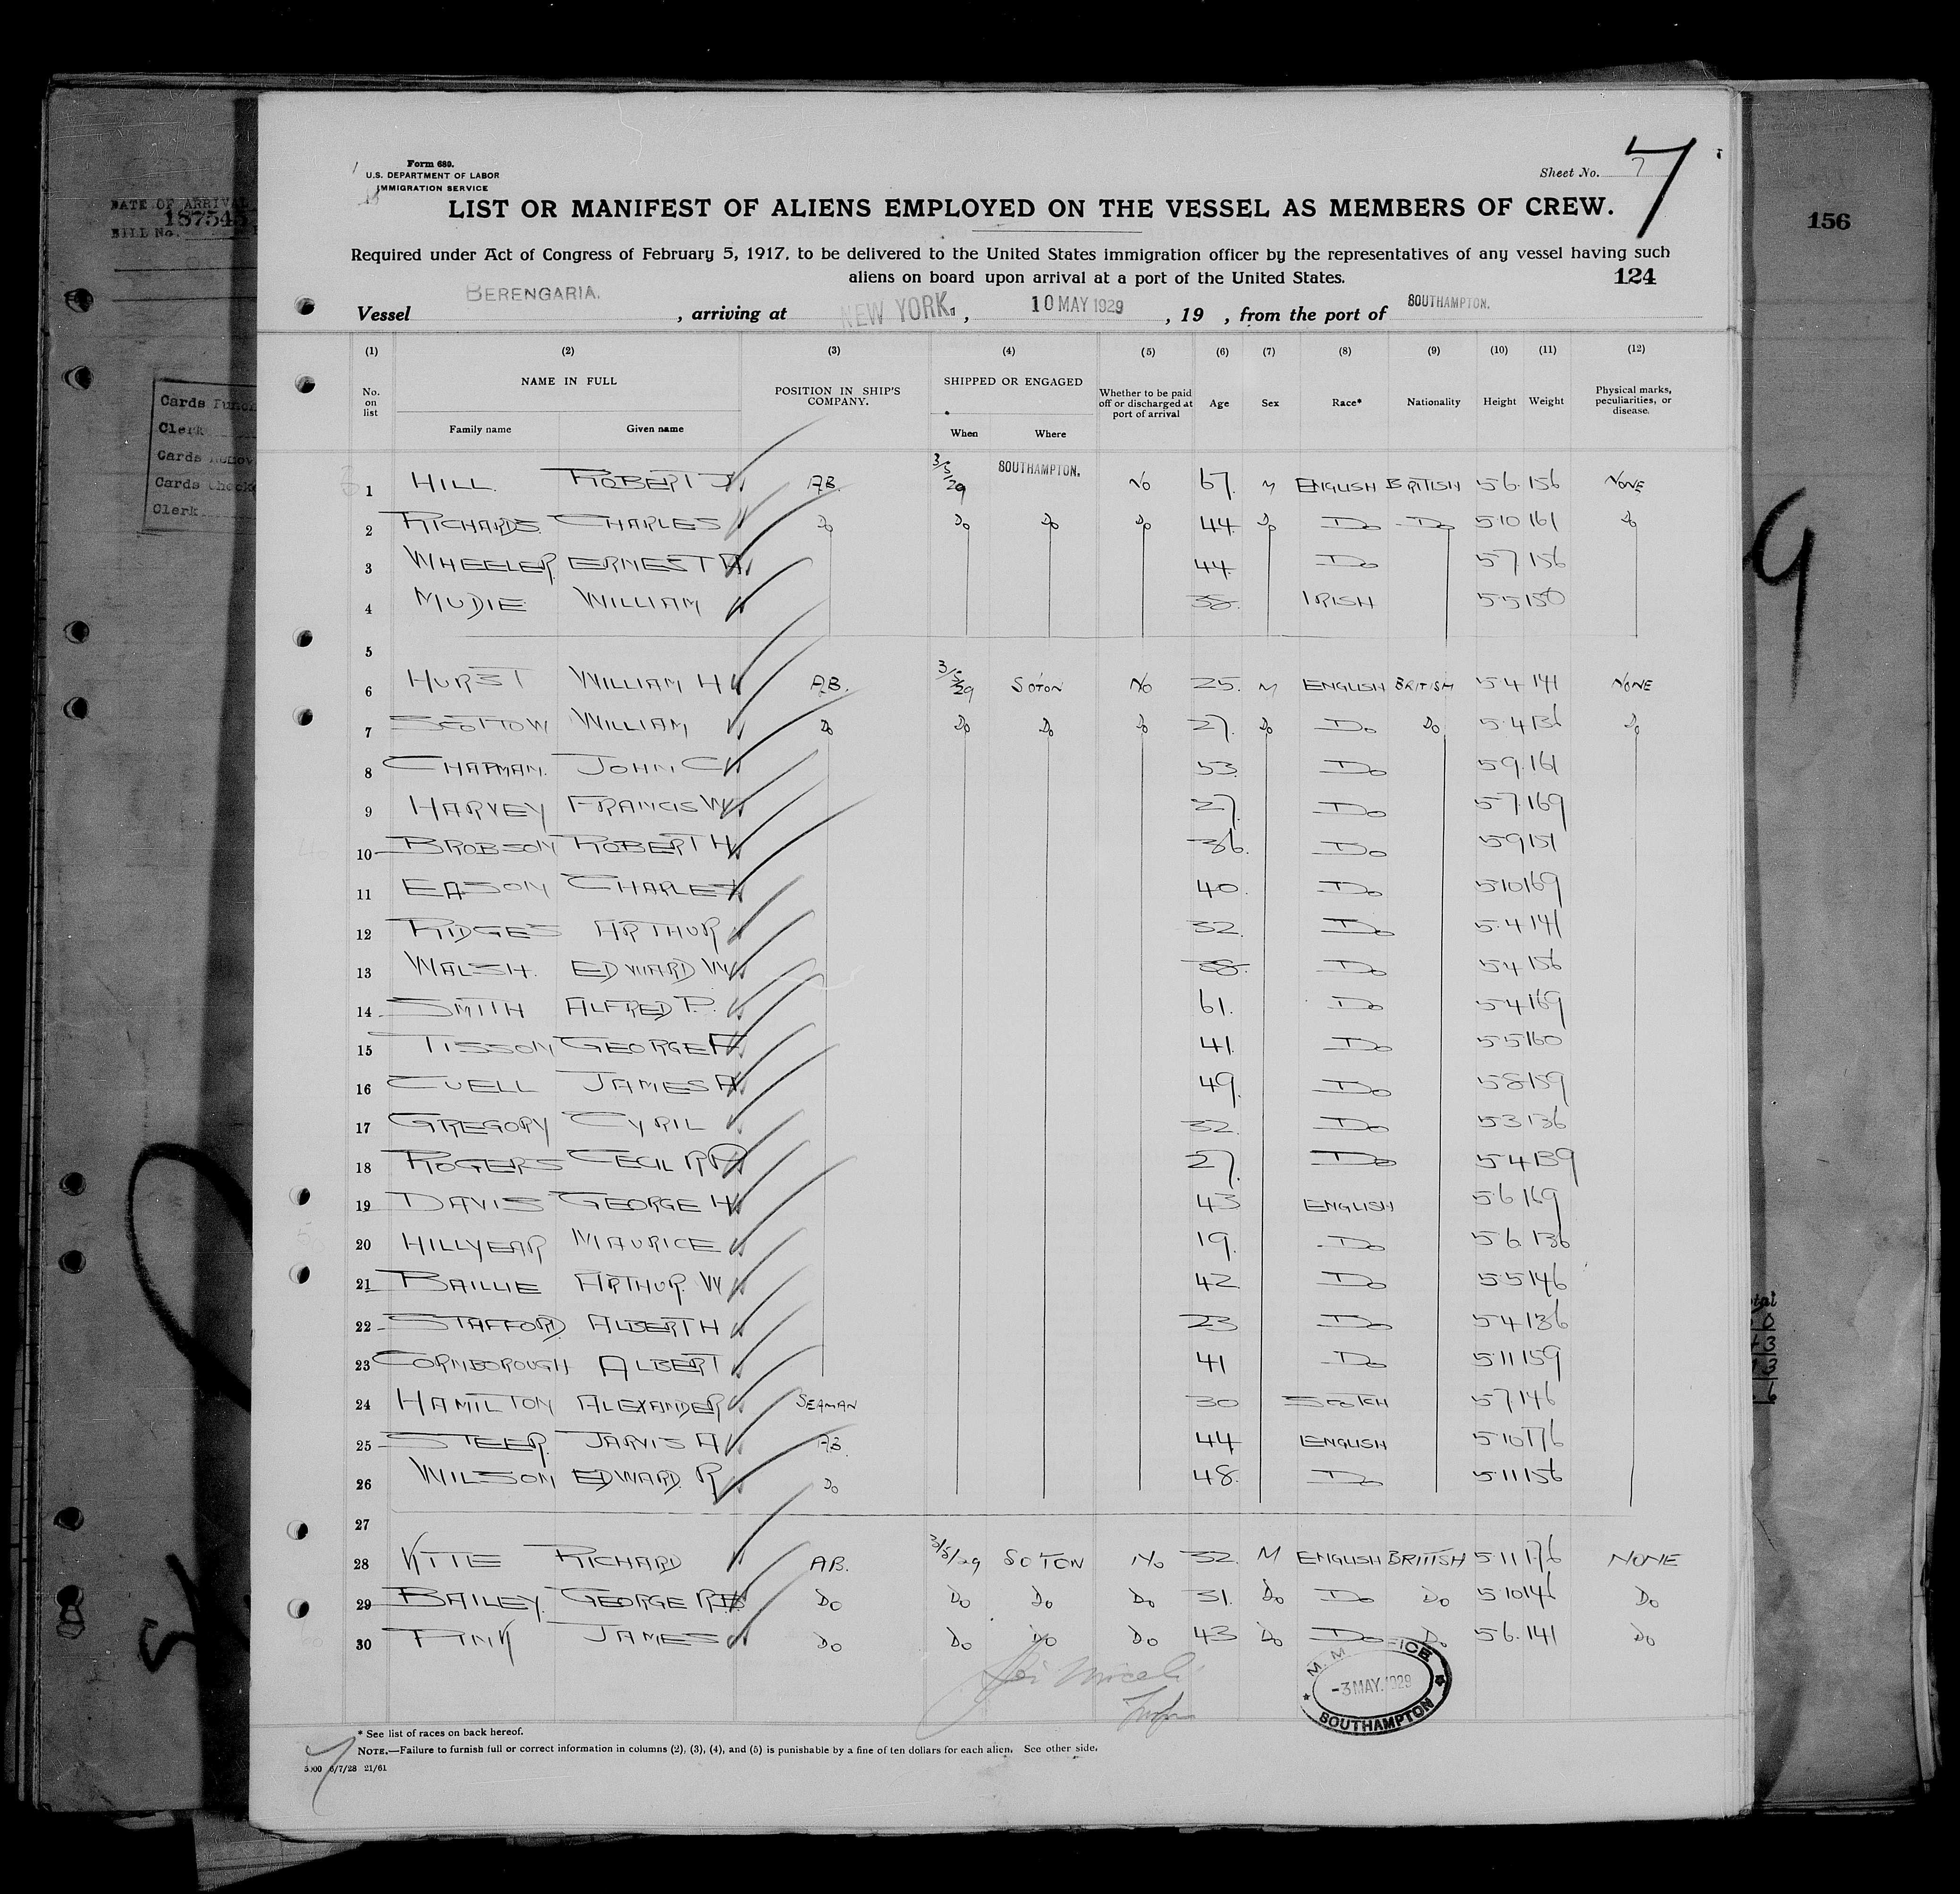 Form 680.
U.S. DEPARTMENT OF LABOR
IMMIGRATION SERVICE
Sheet No. 7
7
LIST OR MANIFEST OF ALIENS EMPLOYED ON THE VESSEL AS MEMBERS OF CREW.
Required under Act of Congress of February 5, 1917, to be delivered to the United States immigration officer by the representatives of any vessel having such
aliens on board upon arrival at a port of the United States.
124
Vessel BERENGARIA. , arriving at NEW YORK. , 10 MAY 1929 , 19 , from the port of SOUTHAMPTON.
(1) (2) (3) (4) (5) (6) (7) (8) (9) (10) (11) (12)
No. on list NAME IN FULL Family name Given name POSITION IN SHIP'S COMPANY. SHIPPED OR ENGAGED When Where Whether to be paid off or discharged at port of arrival Age Sex Race* Nationality Height Weight Physical marks, peculiarities, or disease.
1 HILL. ROBERT J. AB. 3/5/29 SOUTHAMPTON. NO 67. M ENGLISH BRITISH 5 6. 156 NONE
2 RICHARDS. CHARLES Do Do Do Do 44 Do Do Do 5 10 161 Do
3 WHEELER. ERNEST A. 44 Do 5 7 156
4 MUDIE WILLIAM 38. IRISH 5 5 150
5
6 HURST WILLIAM H AB. 3/5/29 SOTON NO 25. M ENGLISH BRITISH 5 4 141 NONE
7 SCOTTOW WILLIAM Do Do Do Do 27. Do Do Do 5.4 136 Do
8 CHAPMAN. JOHN C 53. Do 5 9. 161
9 HARVEY FRANCIS W 27. Do 5 7. 169
10 BROBSON ROBERT H 36. Do 5 9 151
11 EASON CHARLES 40. Do 5 10 169
12 RIDGES ARTHUR 32. Do 5.4 141
13 WALSH. EDWARD W 38. Do 5 4 156
14 SMITH ALFRED P. 61. Do 5 4 169
15 TISSON GEORGE F 41. Do 5 5 160
16 CUELL JAMES A 49. Do 5 8 159
17 GREGORY CYRIL 32. Do 5 3 136
18 ROGERS CECIL R A 27. Do 5 4 139
19 DAVIS GEORGE H 43 ENGLISH 5.6 169
20 HILLYEAR MAURICE 19. Do 5 6. 136
21 BAILLIE ARTHUR. W 42 Do 5.5 146
22 STAFFORD. ALBERT H 23 Do 5 4 136
23 CORNBOROUGH ALBERT 41 Do 5.11 159
24 HAMILTON ALEXANDER SEAMAN 30 SCOTCH 5 7 146
25 STEER. JARVIS A AB. 44 ENGLISH 5.10 176
26 WILSON EDWARD. R Do 48. Do 5.11 156
27
28 KITTE RICHARD AB. 3/5/29 SOTON No 32. M ENGLISH BRITISH 5 11 176 NONE
29 BAILEY. GEORGE R Do Do Do Do 31. Do Do Do 5 10 146 Do
30 PINK JAMES Do Do Do Do 43 Do Do Do 5 6. 141 Do
-3 MAY. 1929
SOUTHAMPTON
* See list of races on back hereof.
NOTE.—Failure to furnish full or correct information in columns (2), (3), (4), and (5) is punishable by a fine of ten dollars for each alien. See other side.
6/7/28 21/61
7
DATE OF ARRIVAL
187545
BILL No.
Cards
Clerk
Cards
Cards
Clerk
156
9